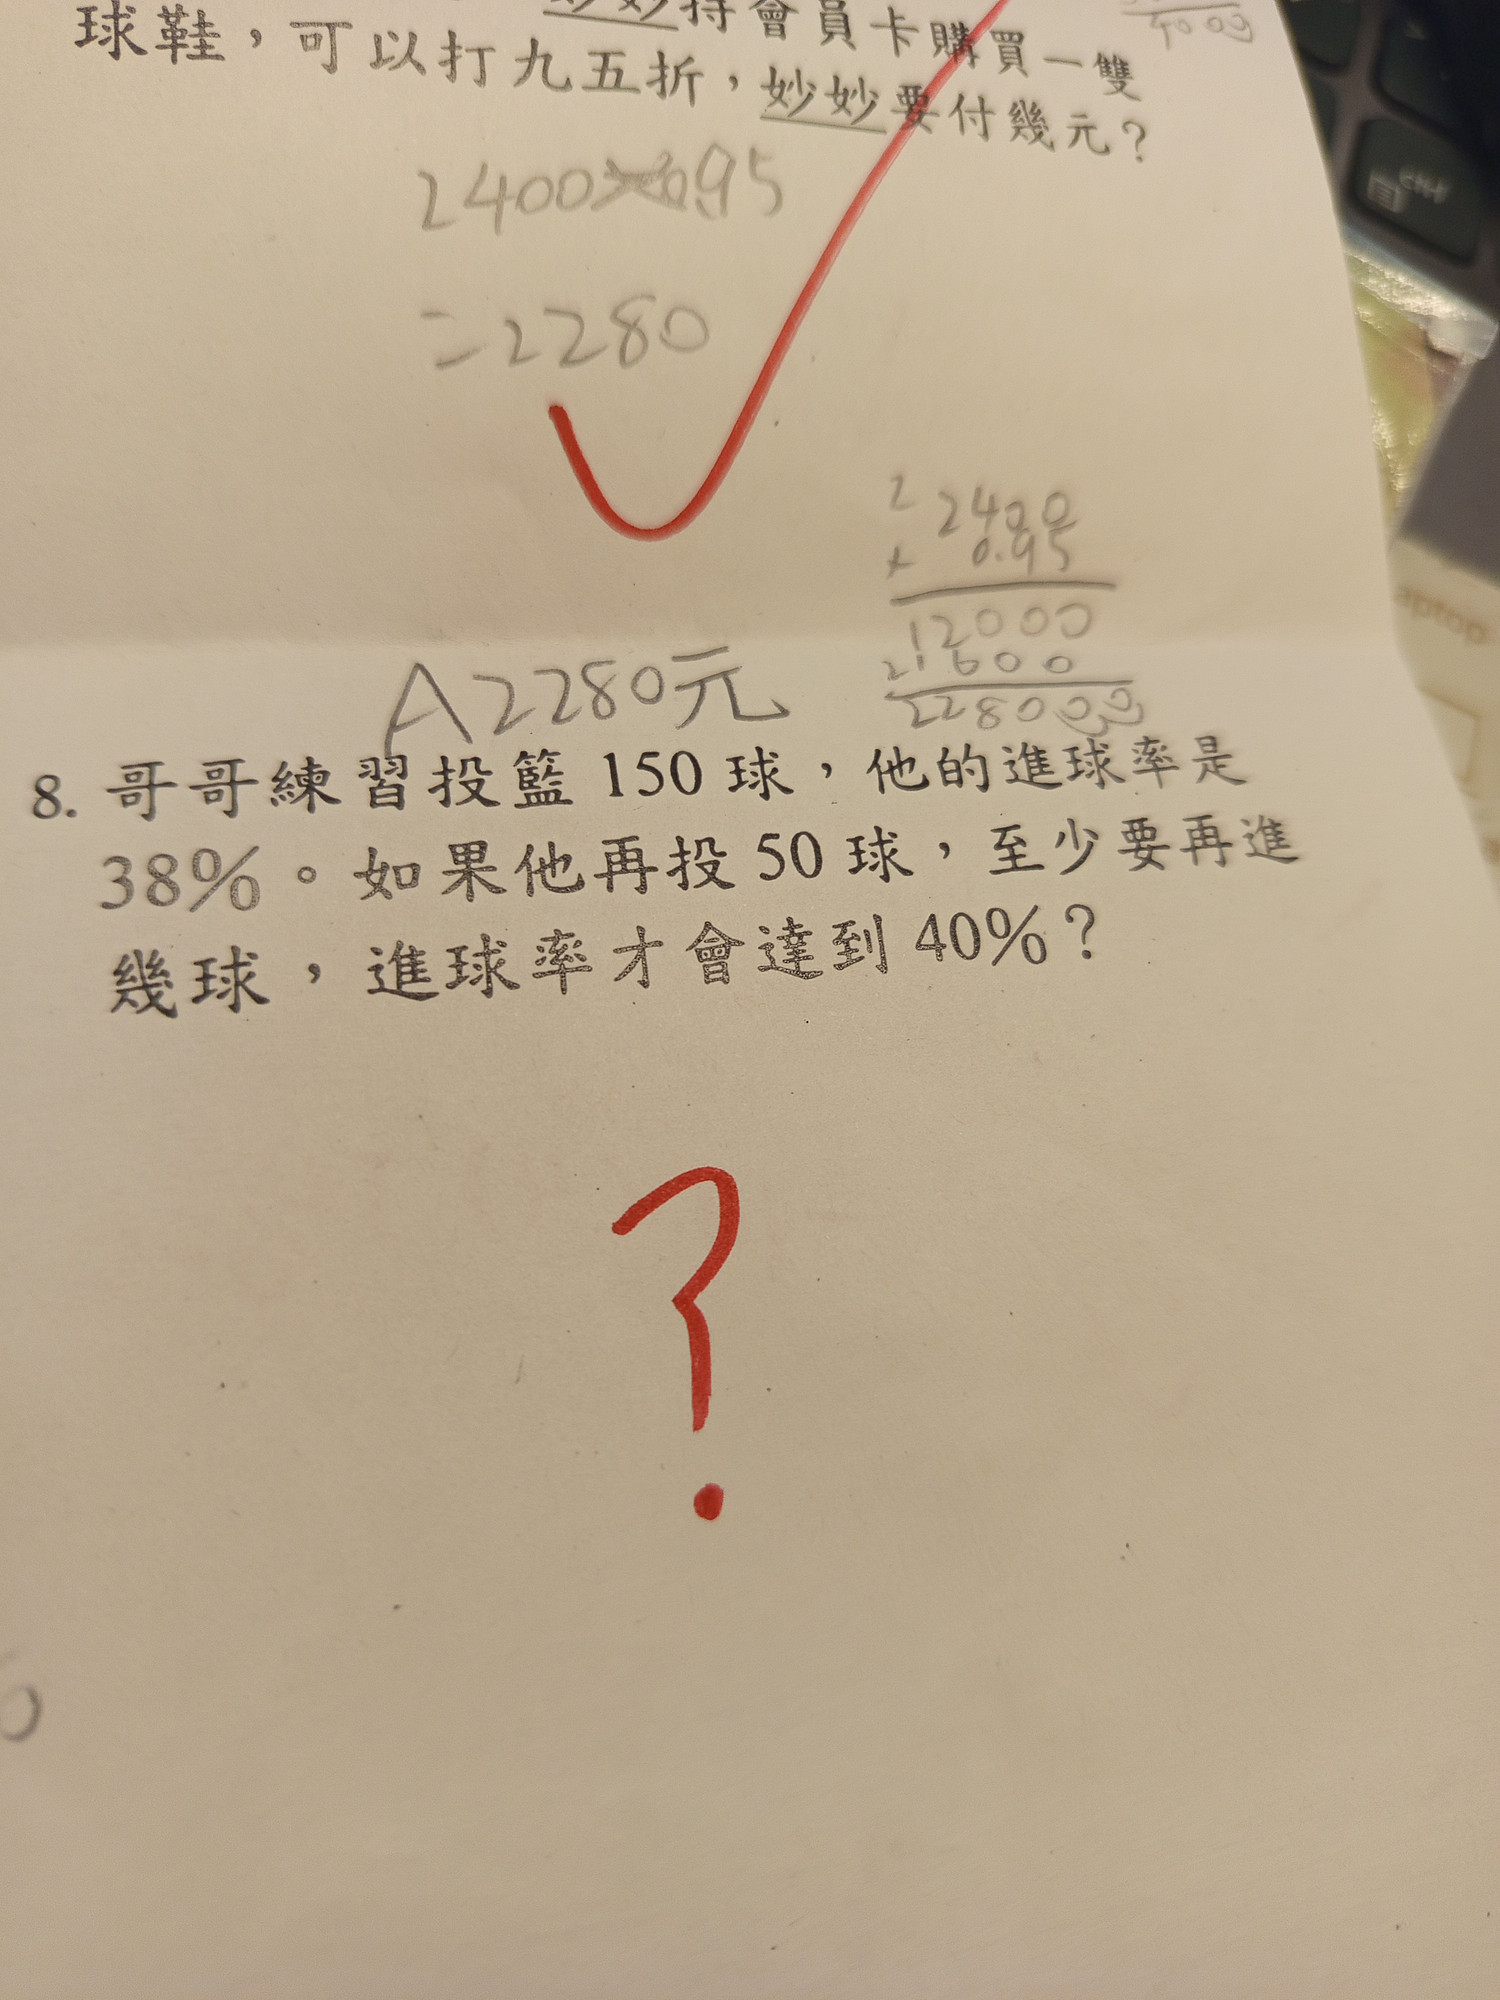 妙妙持會員卡購買一雙
球鞋，可以打九五折，妙妙要付幾元？
2400×0.95
=2280
2400
× 0.95
12000
21600
228000
A2280元
8. 哥哥練習投籃 150 球，他的進球率是
38%。如果他再投 50 球，至少要再進
幾球，進球率才會達到 40%？
?
Ctrl